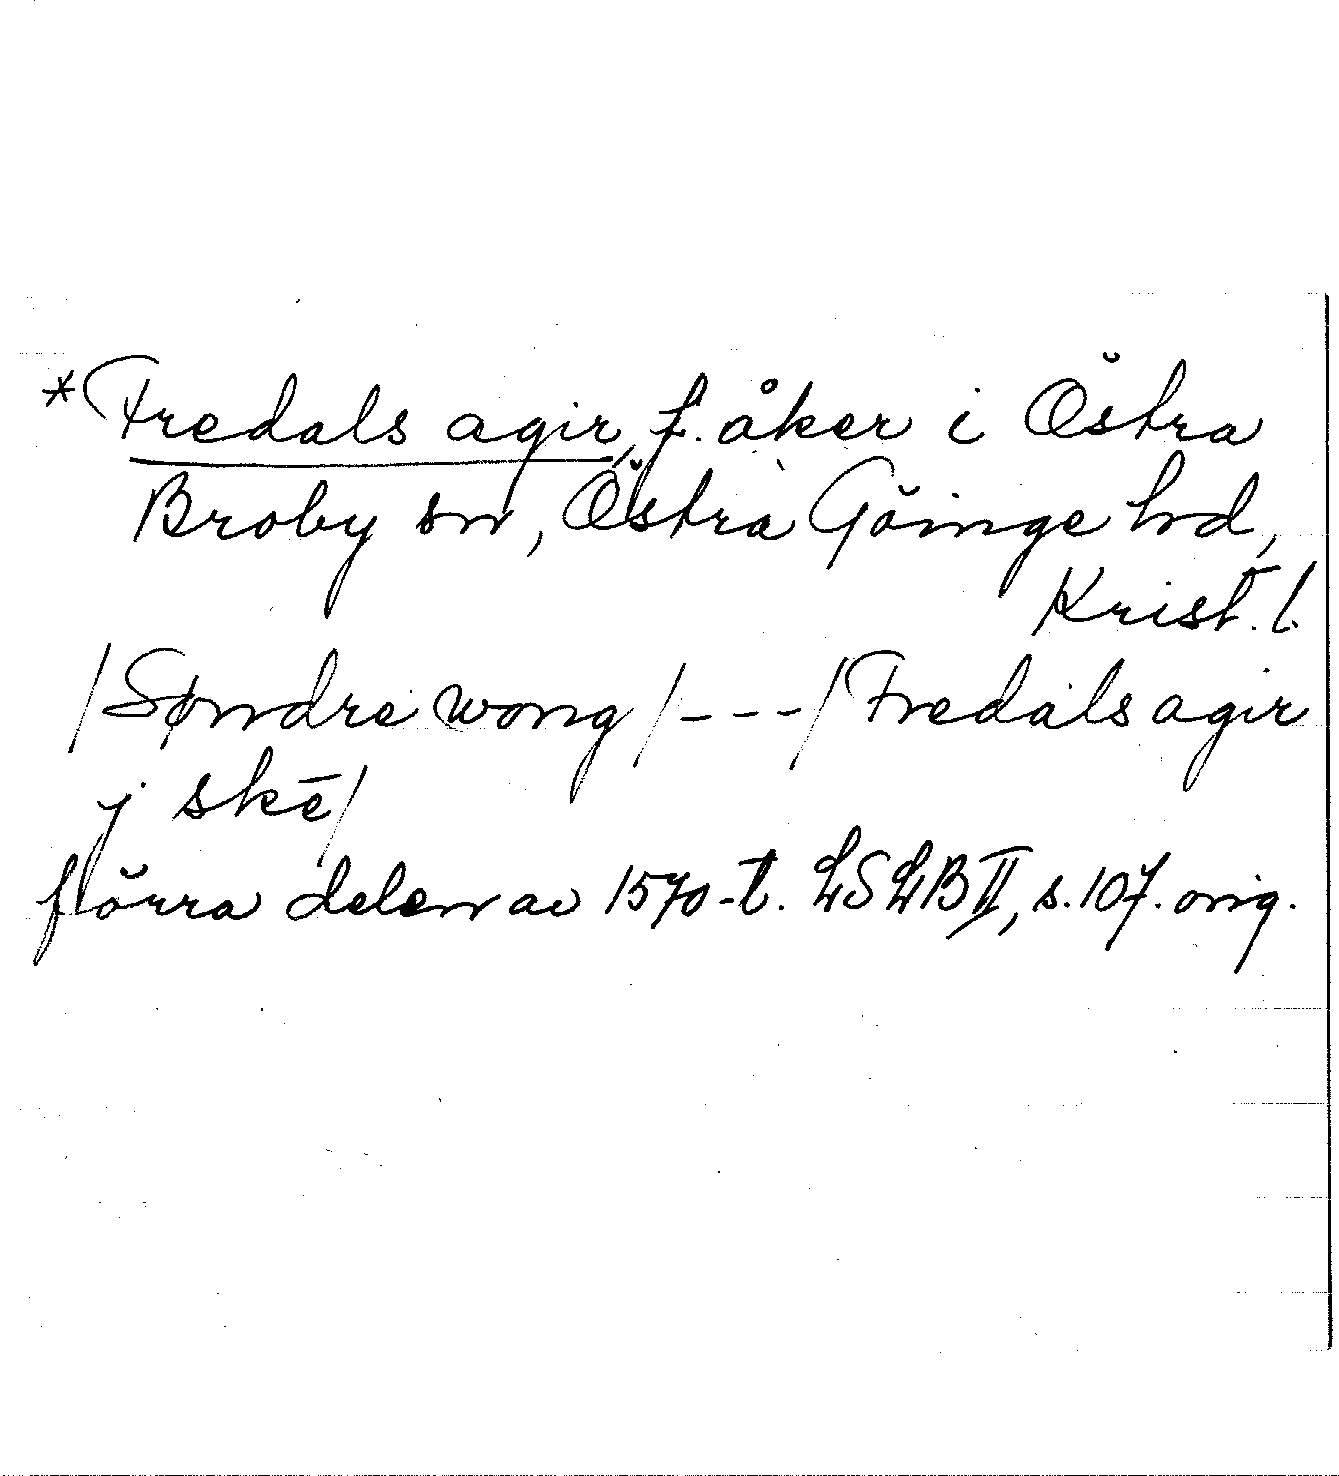 *Fredals agir, f. åker i Östra
Broby sn, Östra Göinge hd,
Krist. l.
/Søndre wong/---/Fredals agir
j skē/
förra delen av 1570-t. LSLB II, s. 107. orig.